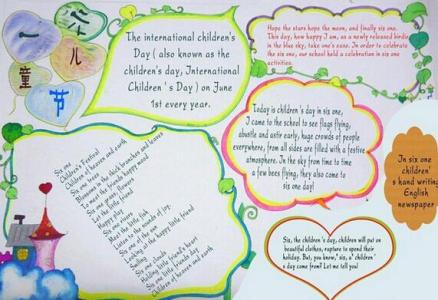 六
一
儿
童
节
The international children's
Day ( also known as the
children's day, International
Children ' s Day ) on June
1st every year.
Hope the stars hope the moon, and finally six one.
This day, how happy I am, as a newly released birdie
in the blue sky, take one's ease. In order to celebrate
the six one, our school held a celebration in six one
activities.
Today is children's day in six one,
I came to the school to see flags flying,
abustle and astir early, huge crowds of people
everywhere, from all sides are filled with a festive
atmosphere. In the sky from time to time
a few bees flying, they also come to
six one day!
In six one
children'
s hand writing
English
newspaper
Six one
Children's Festival
Children of heaven and earth
Six one trees
Blossoms in the thick branches and leaves
La more the friends happy mood
Six one grass, flowers
Let the little friend
Happy play
Six one rivers
Meet the little fish
Listen to the sounds of joy
Six one of the sun
Smiling
Looking at the happy little friend
Six one clouds
Holding little friend's heart
Six one little friends day
Children of heaven and earth
Six, the children's day, children will put on
beautiful clothes, rapture to spend their
holiday. But, you know,' six, a' children'
s day come from? Let me tell you!